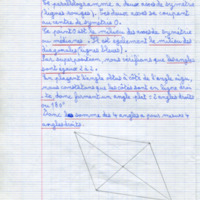 Le parallélogramme a deux axes de symétrie
(lignes rouges). Ces deux axes se coupent
au centre de symétrie O.
Ce point est le milieu des axes de symétrie
ou médianes. Il est également le milieu des
diagonales (lignes bleues).
Par superposition, nous vérifions que les angles
sont égaux 2 à 2.
En plaçant l'angle obtus à côté de l'angle aigu,
nous constatons que les côtés sont en ligne droi
te, donc forment un angle plat : 2 angles droits
ou 180°
Donc la somme des 4 angles a pour mesure 4
angles droits.